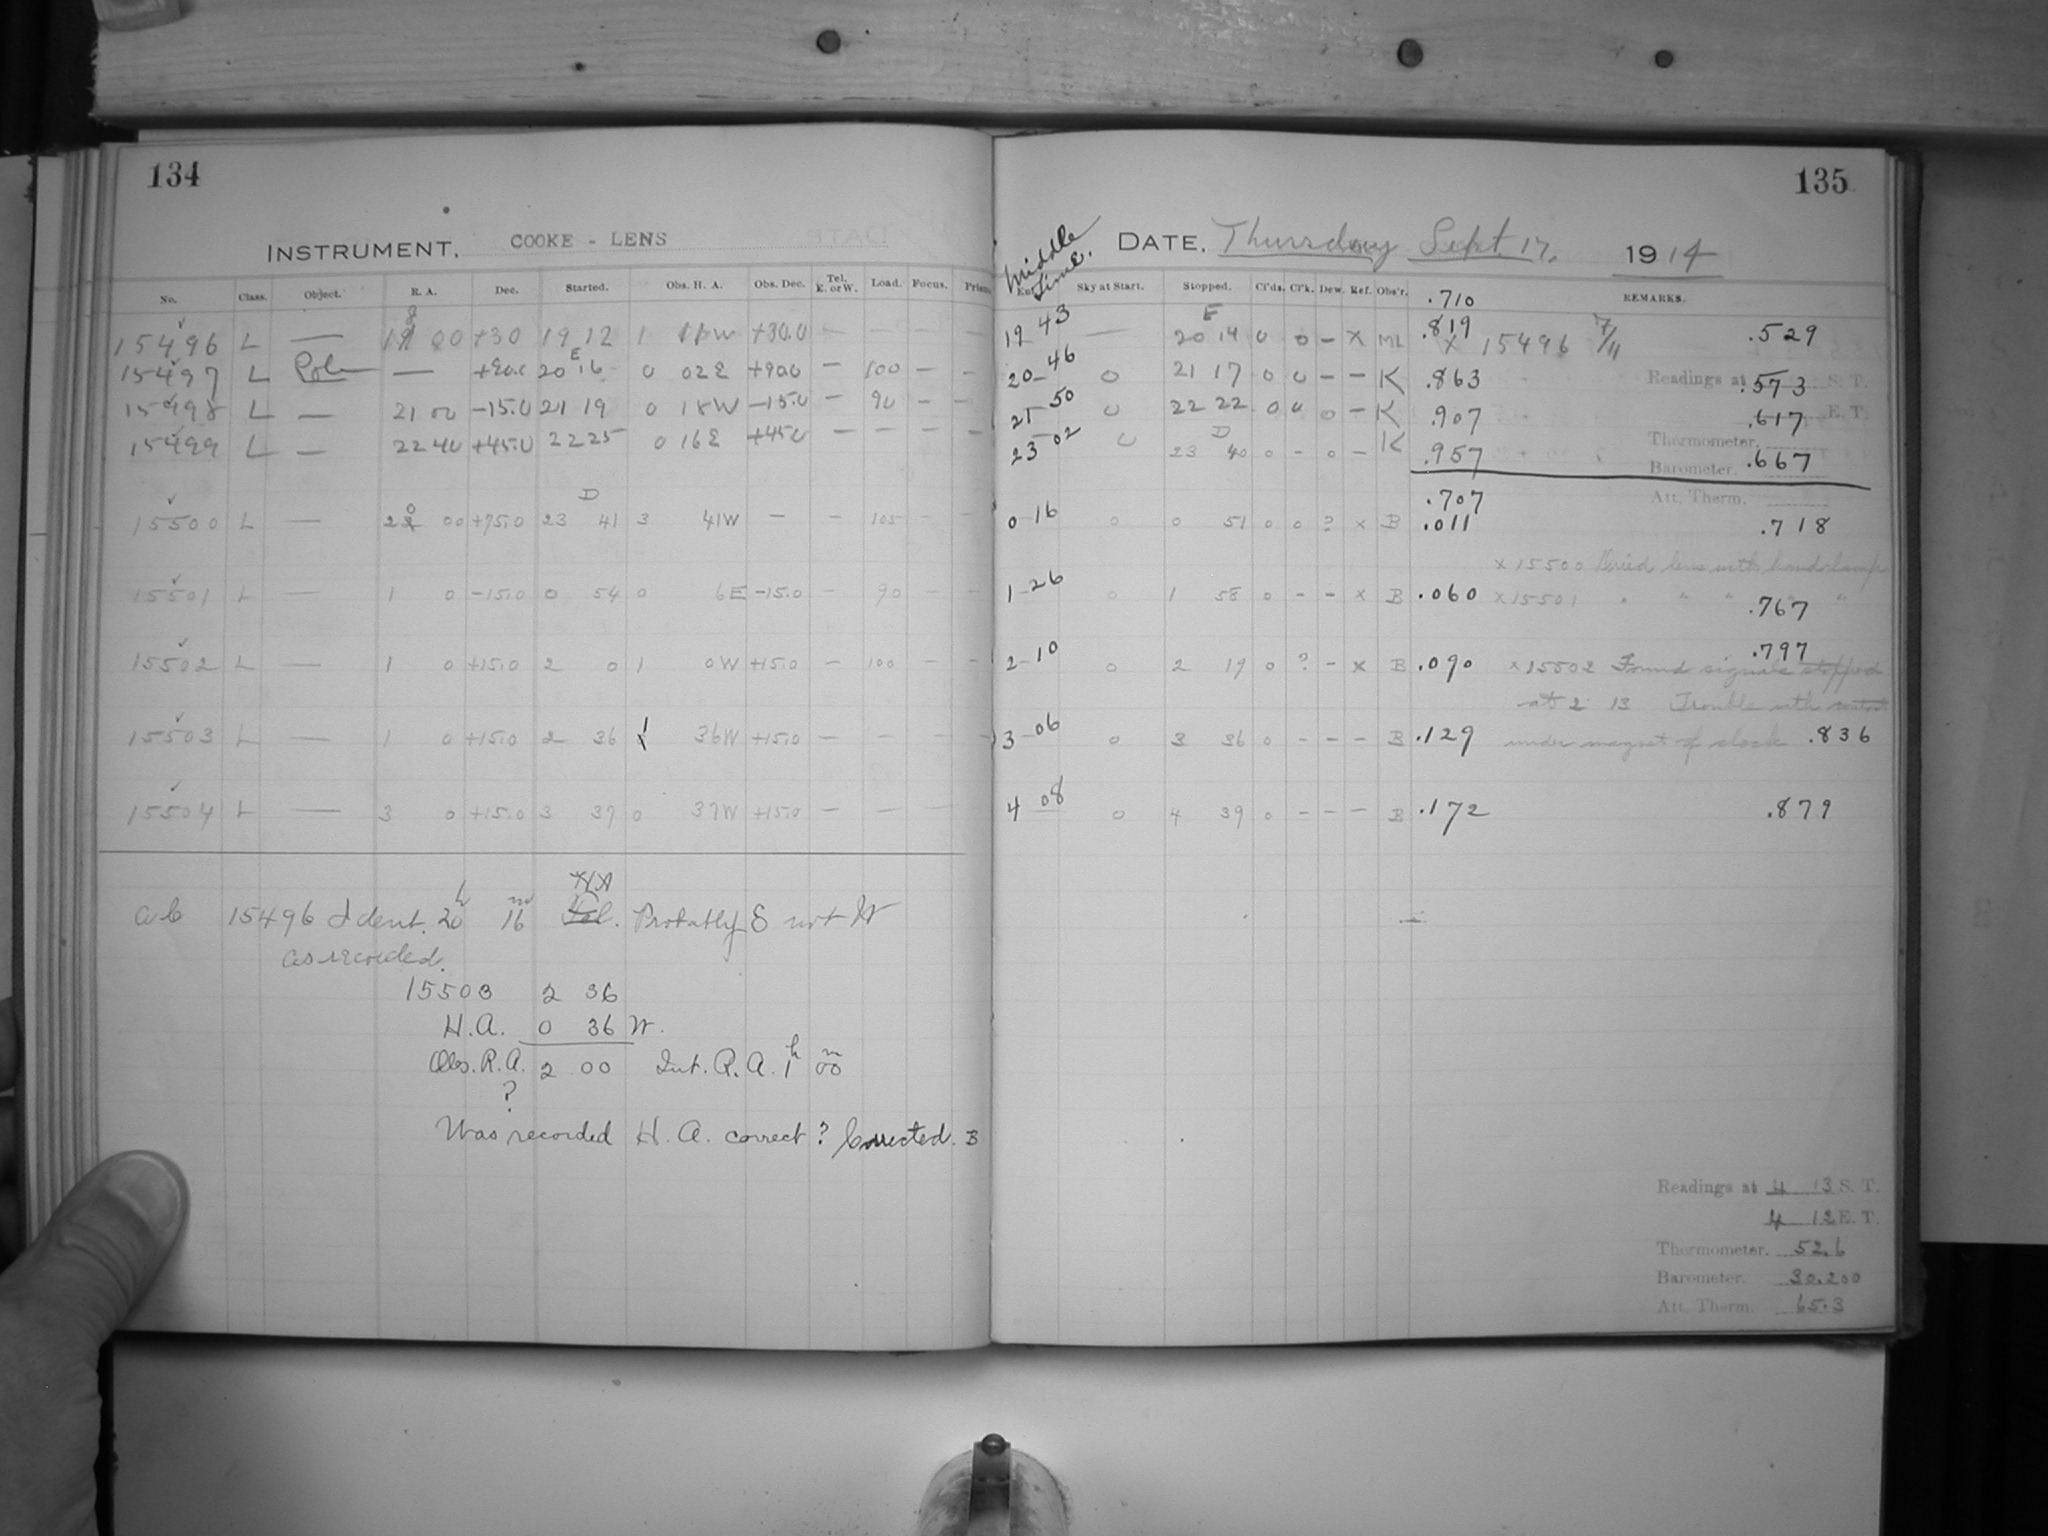 134
INSTRUMENT. COOKE - LENS
No. Class. Object. R. A. Dec. Started. Obs. H. A. Obs. Dec. Tel. E. or W. Load. Focus.
15496 L — 00 +30 19 12 1 W +30.0 — — — —
15497 L Pole — +90.0 20 16 E 0 02 E +90.0 — 100 — —
15498 L — 21 00 -15.0 21 19 0 18W -15.0 — 90 — —
15499 L — 22 40 +45.0 22 25 0 16E +45.0 — — — —
15500 L — 00 +75.0 23 41 D 3 41W — — 105 — —
15501 L — 1 0 -15.0 0 54 0 6E -15.0 — 90 — —
15502 L — 1 0 +15.0 2 0 1 0W +15.0 — 100 — —
15503 L — 1 0 +15.0 2 36 1 36W +15.0 — — — —
15504 L — 3 0 +15.0 3 37 0 37W +15.0 — — —
15496 Ident. 20h 16m HA Probably E not W
as recorded.
15503 2 36
H.A. 0 36 W.
Obs. R.A. 2 00 Int. R.A. 1h 00m
?
Was recorded H. A. correct? Corrected. B
135
Middle Time.
DATE. Thursday Sept. 17. 1914
Sky at Start. Stopped. Cl'ds. Cl'k. Dew. Ref. Obs'r. REMARKS.
.710
19 43 — 20 14 E 0 0 — X ML .819 X 15496 7/11 .529
20-46 0 21 17 0 0 — — K .863 Readings at .573 S. T.
21-50 0 22 22 0 0 0 — K .907 .617 E. T.
23-02 0 23 40 D 0 - 0 — K .957 Thermometer. Barometer. .667
.707 Att. Therm.
0-16 0 0 51 0 0 ? x B .011 .718
x 15500 Dried lens with hand lamp
1-26 0 1 58 0 - - x B .060 x 15501 " " " " .767
.797
2-10 0 2 19 0 ? - x B .090 x 15502 Found signals stopped
at 2 13 Trouble with contact
3-06 0 3 36 0 - - - B .129 under magnet of clock .836
4 08 0 4 39 0 - - - B .172 .879
Readings at 4 13 S. T.
4 12 E. T.
Thermometer. 52.6
Barometer. 30.200
Att. Therm. 65.3